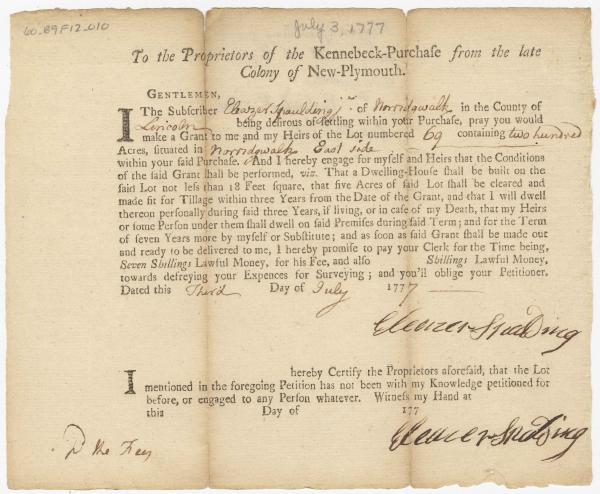 60.B9F12.010
July 3, 1777
To the Proprietors of the Kennebeck-Purchaſe from the late
Colony of New-Plymouth.
GENTLEMEN,
I The Subſcriber Eleazer Spaulding jr. of Norridgwalk in the County of
Lincoln being deſirous of ſettling within your Purchaſe, pray you would
make a Grant to me and my Heirs of the Lot numbered 69 containing two hundred
Acres, ſituated in Norridgwalk East side
within your ſaid Purchaſe. And I hereby engage for myſelf and Heirs that the Conditions
of the ſaid Grant ſhall be performed, viz. That a Dwelling-Houſe ſhall be built on the
ſaid Lot not leſs than 18 Feet ſquare, that five Acres of ſaid Lot ſhall be cleared and
made fit for Tillage within three Years from the Date of the Grant, and that I will dwell
thereon perſonally during ſaid three Years, if living, or in caſe of my Death, that my Heirs
or ſome Perſon under them ſhall dwell on ſaid Premiſes during ſaid Term; and for the Term
of ſeven Years more by myſelf or Subſtitute; and as ſoon as ſaid Grant ſhall be made out
and ready to be delivered to me, I hereby promiſe to pay your Clerk for the Time being,
Seven Shillings Lawful Money, for his Fee, and alſo Shillings Lawful Money,
towards defreying your Expences for Surveying; and you'll oblige your Petitioner.
Dated this Third Day of July 1777
Eleazer Spalding
I hereby Certify the Proprietors aforeſaid, that the Lot
mentioned in the foregoing Petition has not been with my Knowledge petitioned for
before, or engaged to any Perſon whatever. Witneſs my Hand at
this Day of 177
Eleazer Spalding
the Fees